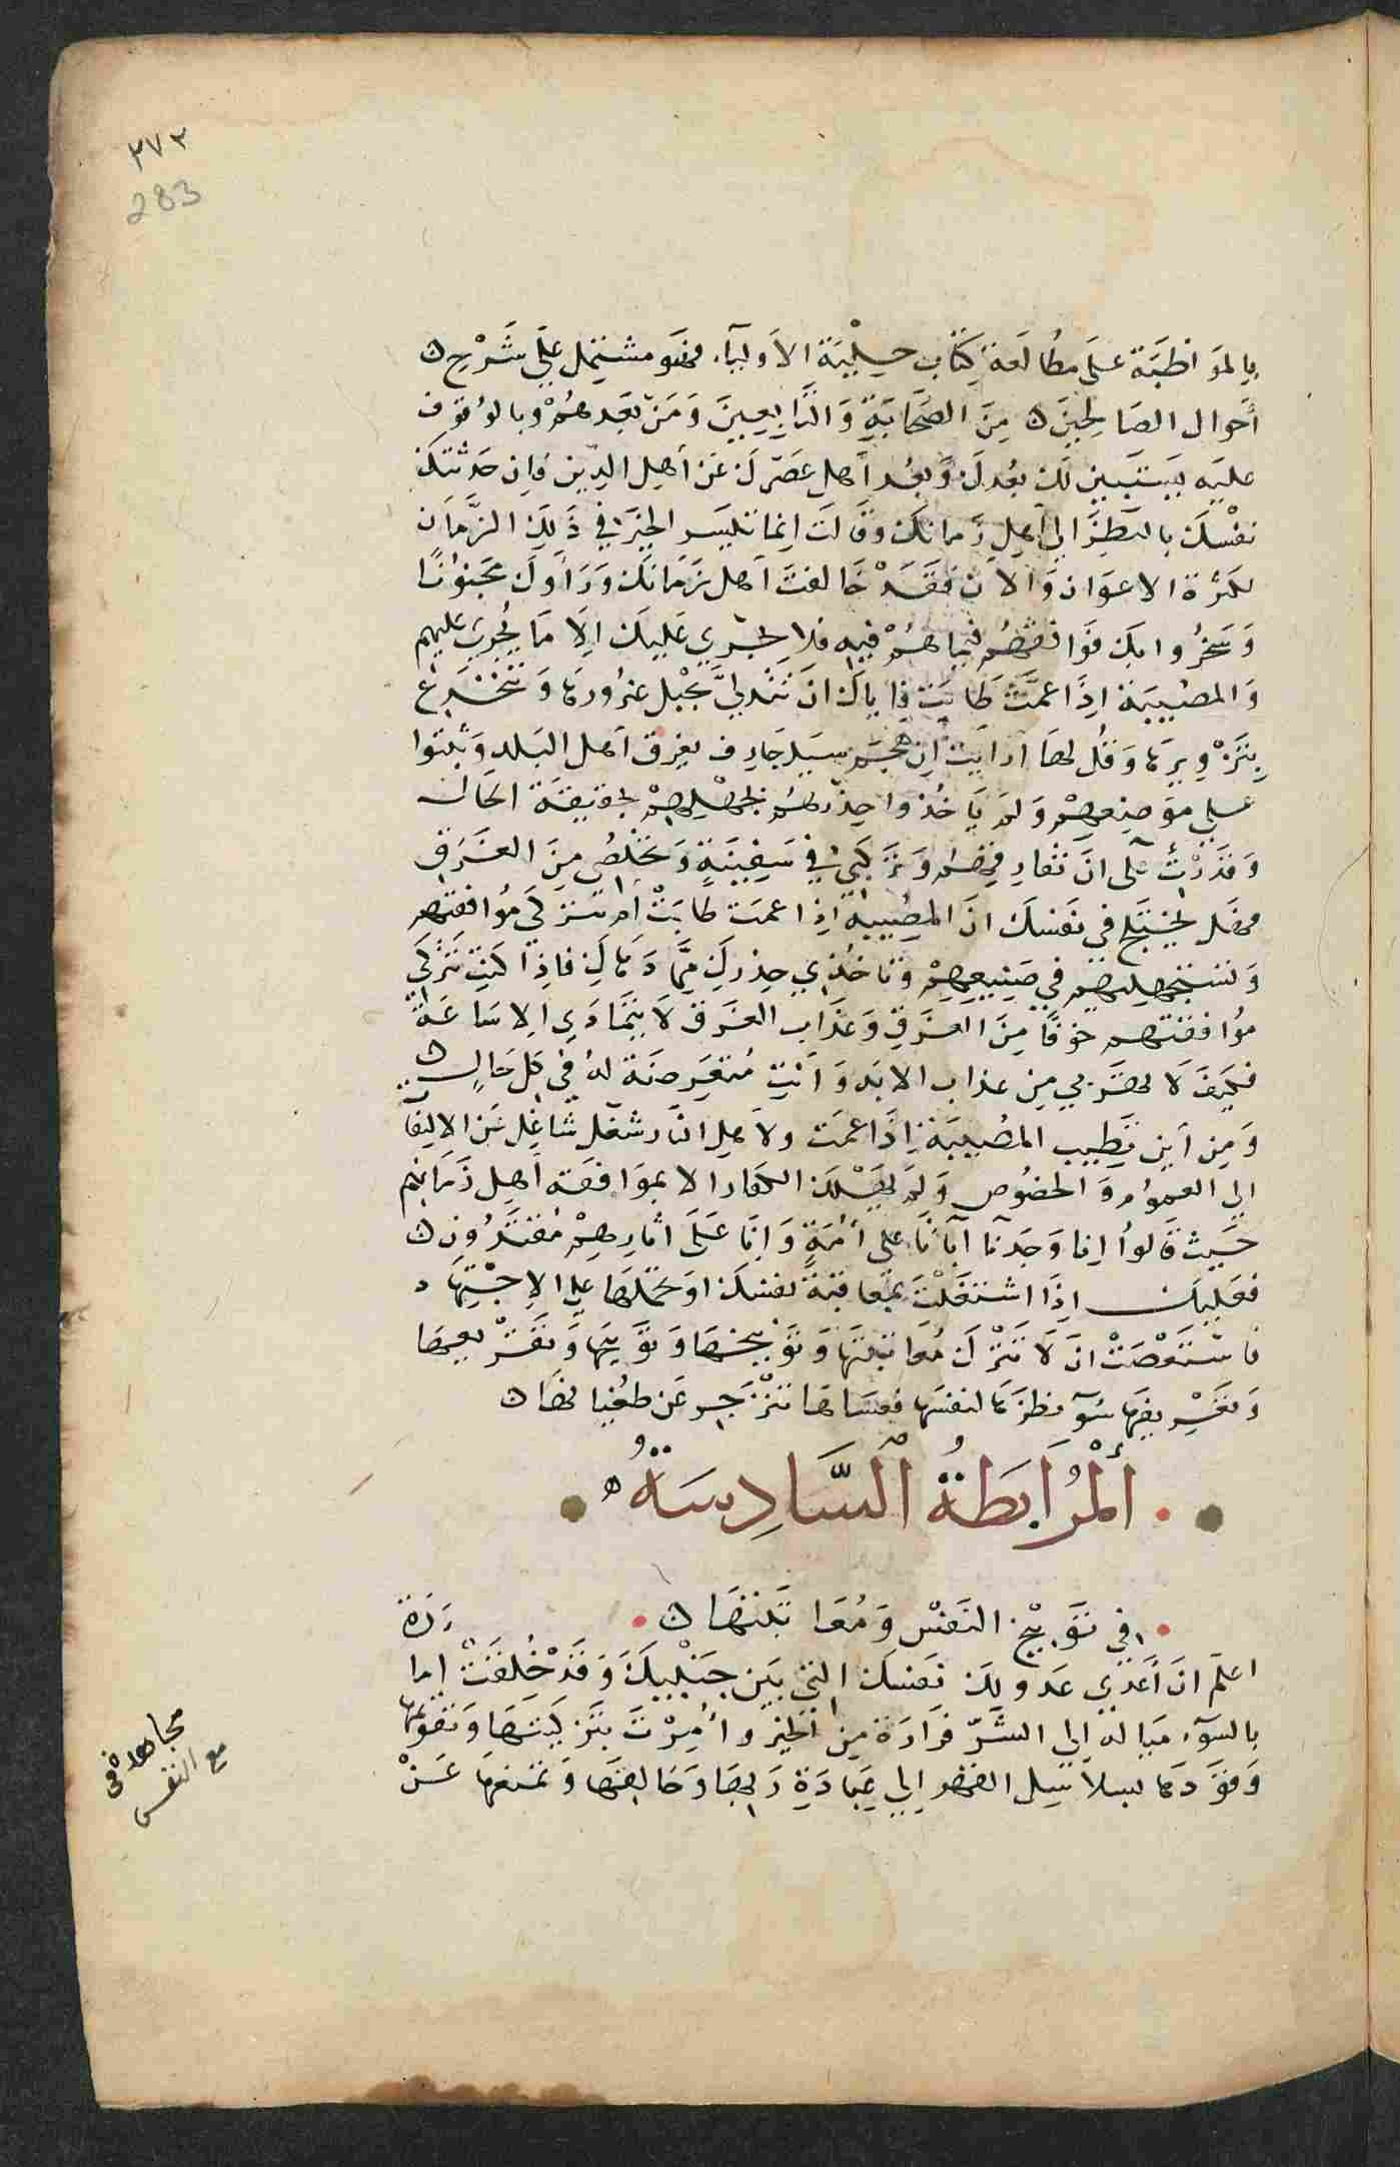 ٢٧٣
283
بالمواظبة على مطالعة كتاب حلية الأولياء فهو مشتمل على شرح
أحوال الصالحين من الصحابة والتابعين ومن بعدهم وبالوقوف
عليه يستبين لك بعدك وبعد أهل عصرك عن أهل الدين فإن حدثتك
نفسك بالنظر إلى أهل زمانك وقالت إنما تيسر الخير في ذلك الزمان
لكثرة الاعوان والآن فقد خالفت أهل زمانك ورأوك مجنونًا
وسخروا بك فوافقهم فيما هم فيه فلا يجري عليك إلا ما يجري عليهم
والمصيبة إذا عمت طابت فإياك ان تتدلى بحبل غرورها وتنخدع
بتزويرها وقل لها أرأيت إن هجم سيل جارف يغرق أهل البلد وثبتوا
على موضعهم ولم ياخذوا حذرهم لجهلهم بحقيقة الحال
وقدرت على ان تفارقهم وتركبي في سفينة وتخلص من الغرق
فهل يختلج في نفسك ان المصيبة إذا عمت طابت أم تتركي موافقتهم
وتستجهليهم في صنيعهم وتاخذي حذرك مما دهاك فاذا كنت تتركي
موافقتهم خوفًا من الغرق وعذاب الغرق لا يتمادى إلا ساعة
فكيف لا تهربي من عذاب الابد وأنت متعرضة له في كل حال
ومن أين تطيب المصيبة إذا عمت ولاهل النار شغل شاغل عن الالتفات
إلى العموم والخصوص ولم يهلك الكفار الا بموافقة أهل زمانهم
حيث قالوا إنا وجدنا آباءنا على أمة وإنا على آثارهم مقتدون
فعليك إذا اشتغلت بمعاقبة نفسك أو تحملها على الاجتهاد
فاستعصت ان لا تترك معاتبتها وتوبيخها وتقريعها
وتعريفها سوء نظرها لنفسها فعساها تنزجر عن طغيانها
المرابطة السادسة
في توبيخ النفس ومعاتبتها
اعلم ان أعدى عدو لك نفسك التي بين جنبيك وقد خلقت امارة
بالسوء ميالة إلى الشر فرارة من الخير وأمرت بتزكيتها وتقويمها
وقودها بسلاسل القهر إلى عبادة ربها وخالقها وتمنعها عن
مجاهدة في
مع النفس